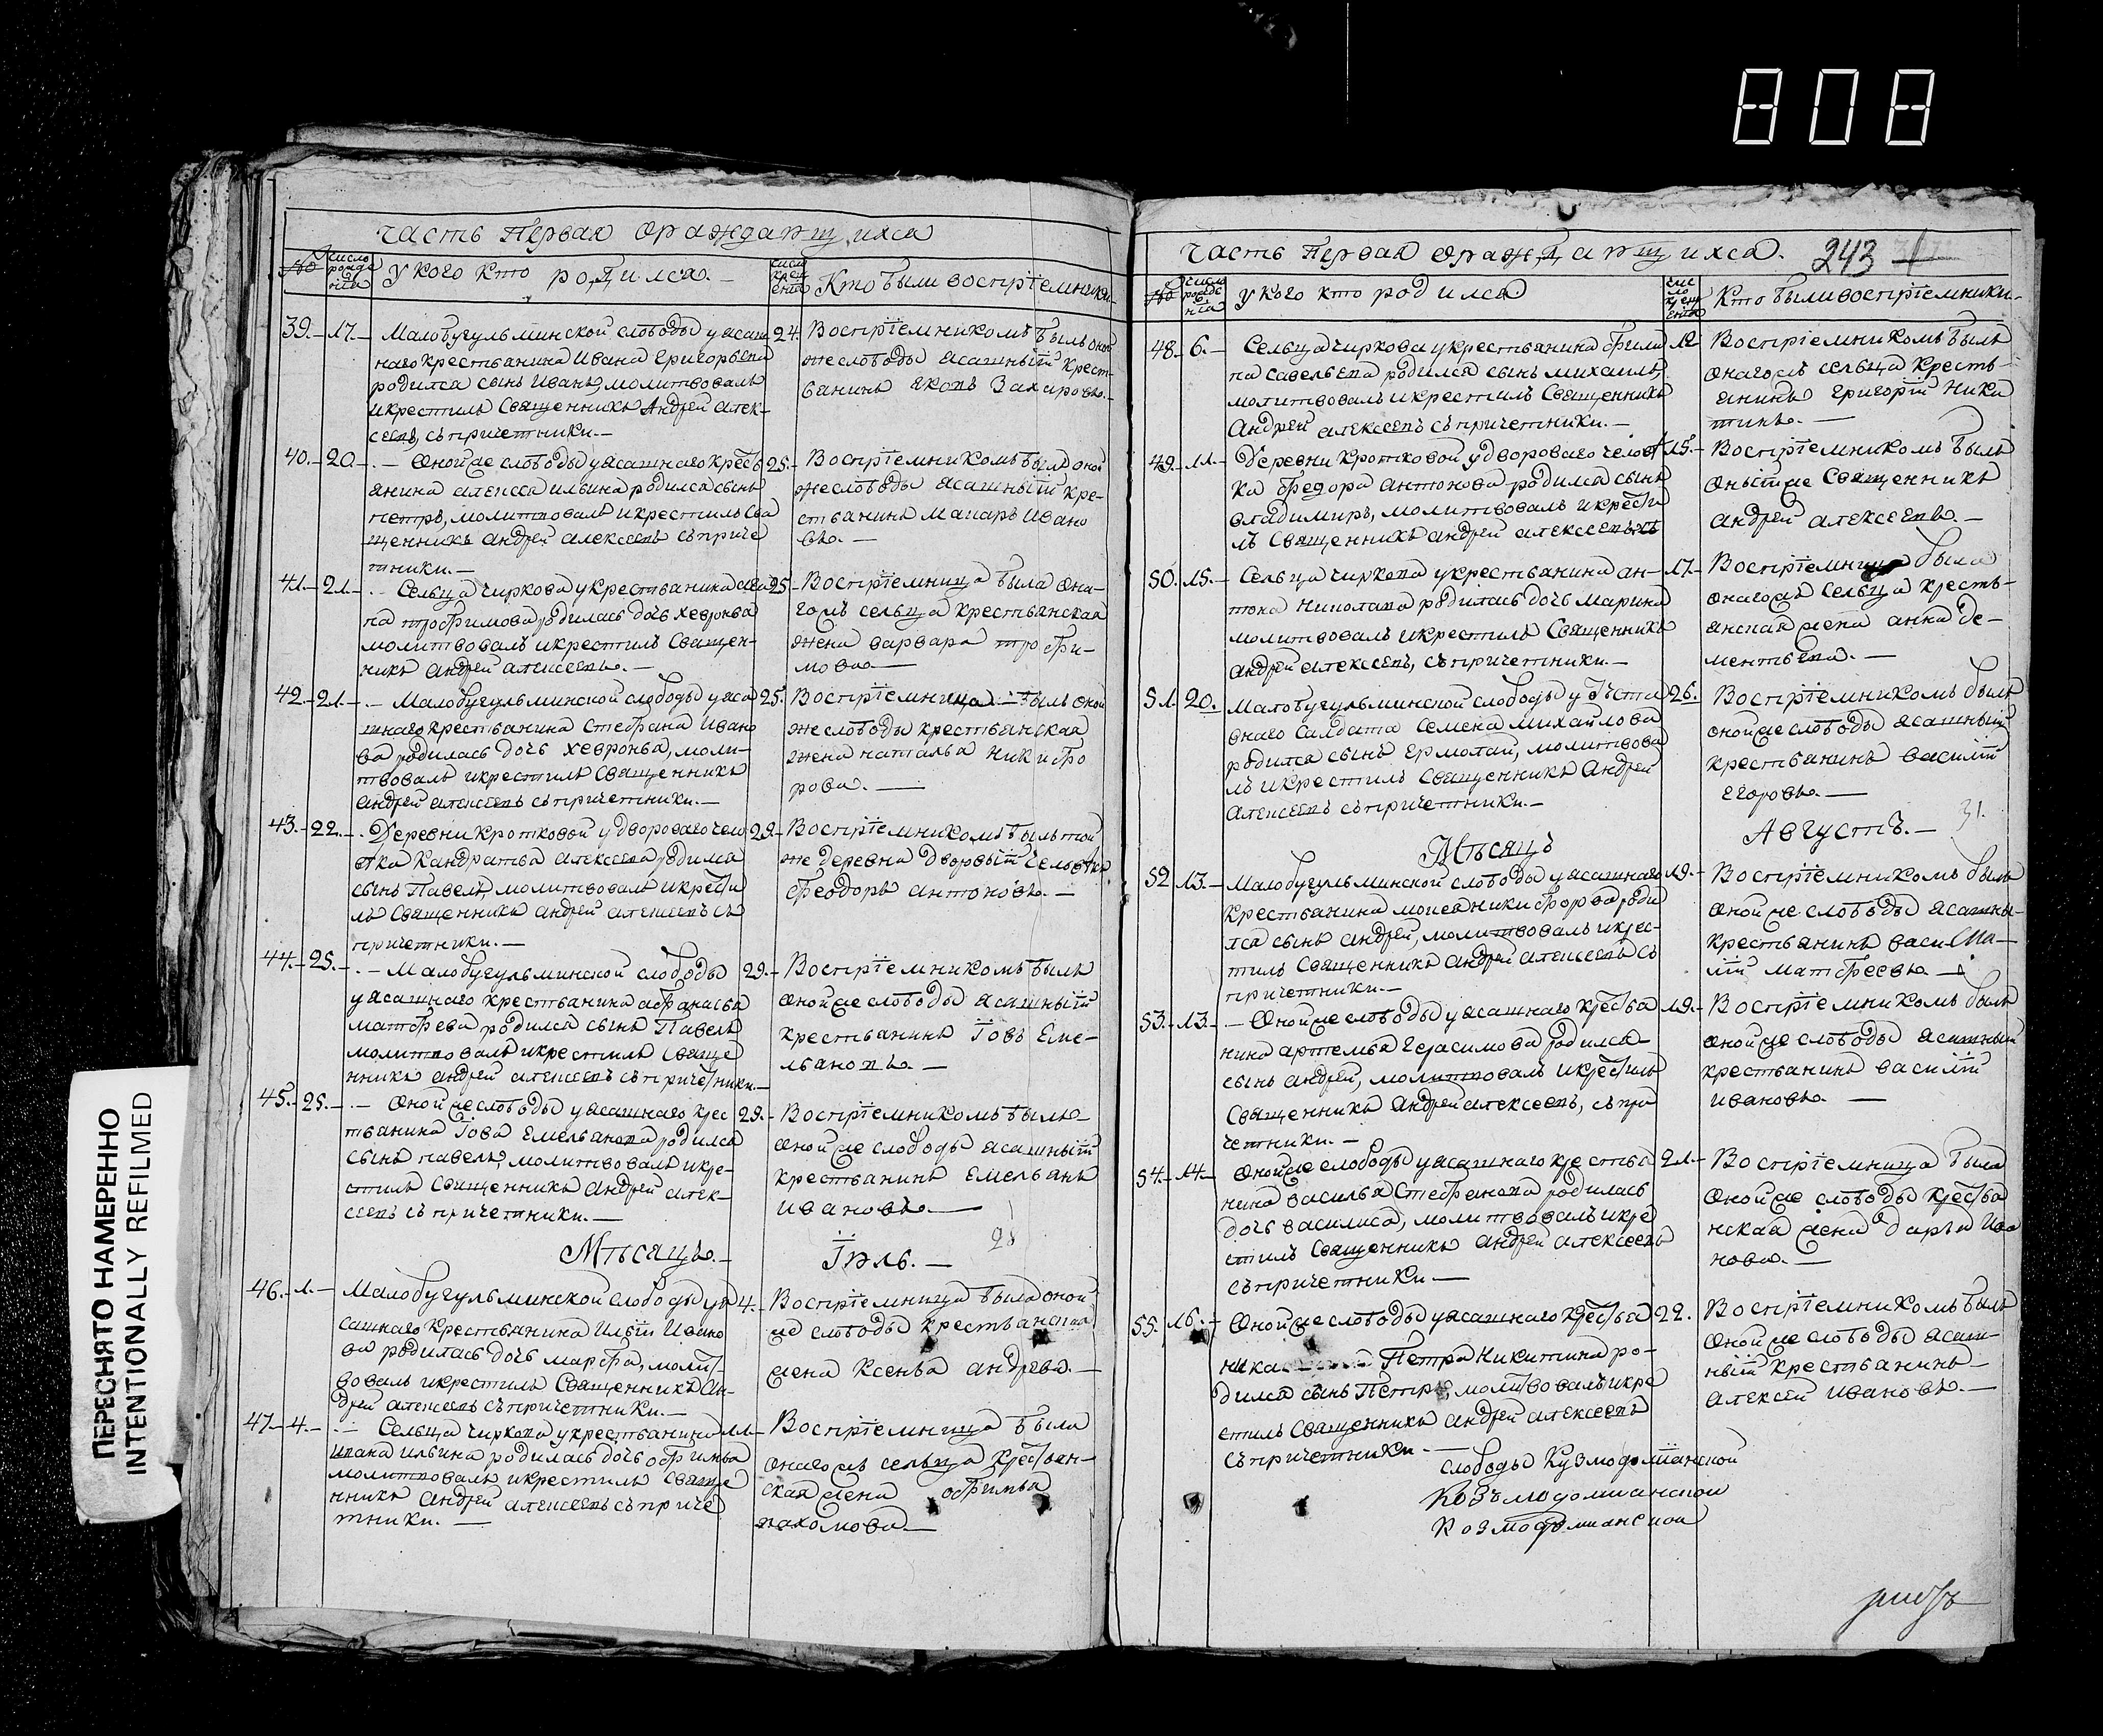 808
ПЕРЕСНЯТО НАМЕРЕННО
INTENTIONALLY REFILMED
Часть Первая ораждающихся
№ число рожденiя
у кого кто родился.
число крещенiя
Кто были воспрiемники
39. 17. Малобугульминской слободы у ясаш
24.
наго крестьянина Ивана Григорьева
родился сынъ Иванъ, молитвовалъ
и крестилъ Священникъ Андрей алек-
сеевъ, съ причетники.
Воспрiемникомъ былъ оной
же слободы ясашный крест-
ьянинъ яковъ Захаровъ.
40. 20. Оной же слободы у ясашнаго кресть
25.
янина алексея ильина родился сынъ
петръ, молитвовалъ и крестилъ Свя
щенникъ андрей алексеевъ съ приче
тники.
Воспрiемникомъ былъ оной
же слободы ясашный кре-
стьянинъ Макаръ Ивано
въ.
41. 21. Сельца чиркова у крестьянина
25
трофимова родилась дочь хевронья
молитвовалъ и крестилъ Священ-
никъ андрей алексеевъ.
Воспрiемница была она-
гожъ сельца крестьянская
жена варвара трофи-
мова.
42. 21. Малобугульминской слободы у яса
25.
шнаго крестьянина Стефана Ивано
ва родилась дочь хевронья, моли-
твовалъ и крестилъ Священникъ
андрей алексеевъ съ причетники.
Воспрiемница былъ оной
же слободы крестьянская
жена наталья Никифо
рова.
43. 22. Деревни кротковой у двороваго чело
29.
века Кандратья алексеева родился
сынъ Павелъ, молитвовалъ и крести
лъ Священникъ андрей алексеевъ съ
причетники.
Воспрiемникомъ былъ той
же деревни дворовый человекъ
феодоръ антоновъ.
44. 25. Малобугульминской слободы
29.
у ясашнаго крестьянина афанасья
матфева родился сынъ Павелъ
молитвовалъ и крестилъ Свяще
нникъ андрей алексеевъ съ причетники.
Воспрiемникомъ былъ
оной же слободы ясашный
крестьянинъ Iовъ Еме-
льановъ.
45. 25. Оной же слободы у ясашнаго крес
29.
тьянина Iова Емельянова родился
сынъ павелъ, молитвовалъ и кре-
стилъ Священникъ андрей алек-
сеевъ съ причетники.
Воспрiемникомъ былъ
оной же слободы ясашный
крестьянинъ Емельянъ
ивановъ.
28
Мѣсяцъ.
Iюль.
46. 1. Малобугульминской слободы у я
4.
сашнаго крестьянина Ильи Ивано
ва родилась дочь марфа, молит
вовалъ и крестилъ Священникъ Ан-
дрей алексеевъ съ причетники.
Воспрiемница была оной
же слободы крестьянская
жена Ксенья андрева.
47. 4. Сельца чиркова у крестьянина
11.
ивана ильина родилась дочь офимья
молитвовалъ и крестилъ Свяще
нникъ андрей алексеевъ съ приче
тники.
Воспрiемница была
онагожъ сельца крестьян-
ская жена офимья
пахомова.
Часть Первая ораждающихся.
243
№ число рожденiя
у кого кто родился
число крещенiя
Кто были воспрiемники.
48. 6. Сельца чиркова у крестьянина фили
12
па савельева родился сынъ михаилъ
молитвовалъ и крестилъ Священникъ
Андрей алексеевъ съ причетники.
Воспрiемникомъ былъ
онагожъ сельца кресть-
янинъ григорiй Ники
тинъ.
49. 11. Деревни Кротковой у двороваго челов
15.
ка федора антонова родился сынъ
владимиръ, молитвовалъ и крести
лъ Священникъ андрей алексеевъ
Воспрiемникомъ былъ
оный же Священникъ
андрей алексеевъ.
50. 15. Сельца чиркова у крестьянина ан-
17.
тона николаева родилась дочь Марина
молитвовалъ и крестилъ Священникъ
андрей алексеевъ, съ причетники.
Воспрiемница была
онагожъ сельца кресть-
янская жена анна де-
ментьева.
51. 20. Малобугульминской слободы у
26.
внаго Салдата семена михайлова
родился сынъ Ермолай, молитвова
лъ и крестилъ Священникъ Андрей
алексеевъ съ причетники.
Воспрiемникомъ былъ
оной же слободы ясашный
крестьянинъ василiй
Егоровъ.
31.
Мѣсяцъ
Августъ.
52 13. Малобугульминской слободы у ясашнаго
19.
крестьянина моисея никифорова роди
лся сынъ андрей, молитвовалъ и крес-
тилъ Священникъ андрей алексеевъ съ
причетники.
Воспрiемникомъ былъ
оной же слободы ясашны-
крестьянинъ васи
лiй матфеевъ
53. 13. Оной же слободы у ясашнаго крестья
19.
нина артемья герасимова родился
сынъ андрей, молитвовалъ и крестилъ
Священникъ андрей алексеевъ, съ при
четники.
Воспрiемникомъ былъ
оной же слободы ясашный
крестьянинъ василiй
ивановъ.
54. 14. Оной же слободы у ясашнаго крестья
21.
нина василья Стефанова родилась
дочь василиса, молитвовалъ и кре
стилъ Священникъ андрей алексеевъ
съ причетники.
Воспрiемница была
оной же слободы крестья
нская жена дарья Ива
нова.
55. 16. Оной же слободы у ясашнаго крестья
22.
нина Петра Никитина ро-
дился сынъ Петръ, молитвовалъ и кре
стилъ Священникъ андрей алексеевъ
съ причетники.
Воспрiемникомъ былъ
оной же слободы ясаш-
ный крестьянинъ
алексей ивановъ.
слободы Кузмодемiанской
Козьмодомианской
Козмодемианской